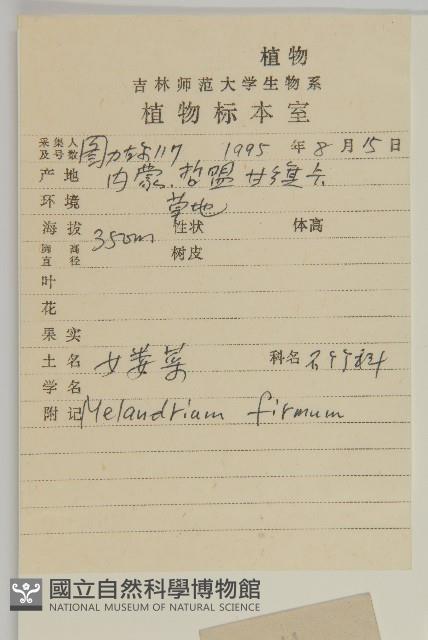 植物
吉林师范大学生物系
植物标本室
采集人及号数 图力古尔117 1995 年 8 月 15 日
产地 内蒙.哲盟 甘旗卡
环境 草地
海拔 350m 性状 体高
胸高直径 树皮
叶
花
果实
土名 女娄菜 科名 石竹科
学名
附记 Melandrium firmum
國立自然科學博物館
NATIONAL MUSEUM OF NATURAL SCIENCE